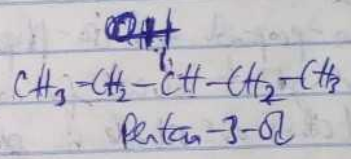 OH
CH₃-CH₂-CH-CH₂-CH₃
Pentan-3-ol